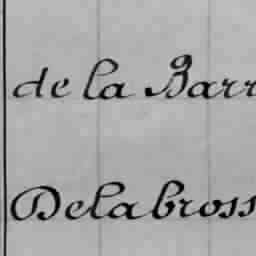 de la Barr
Delabross